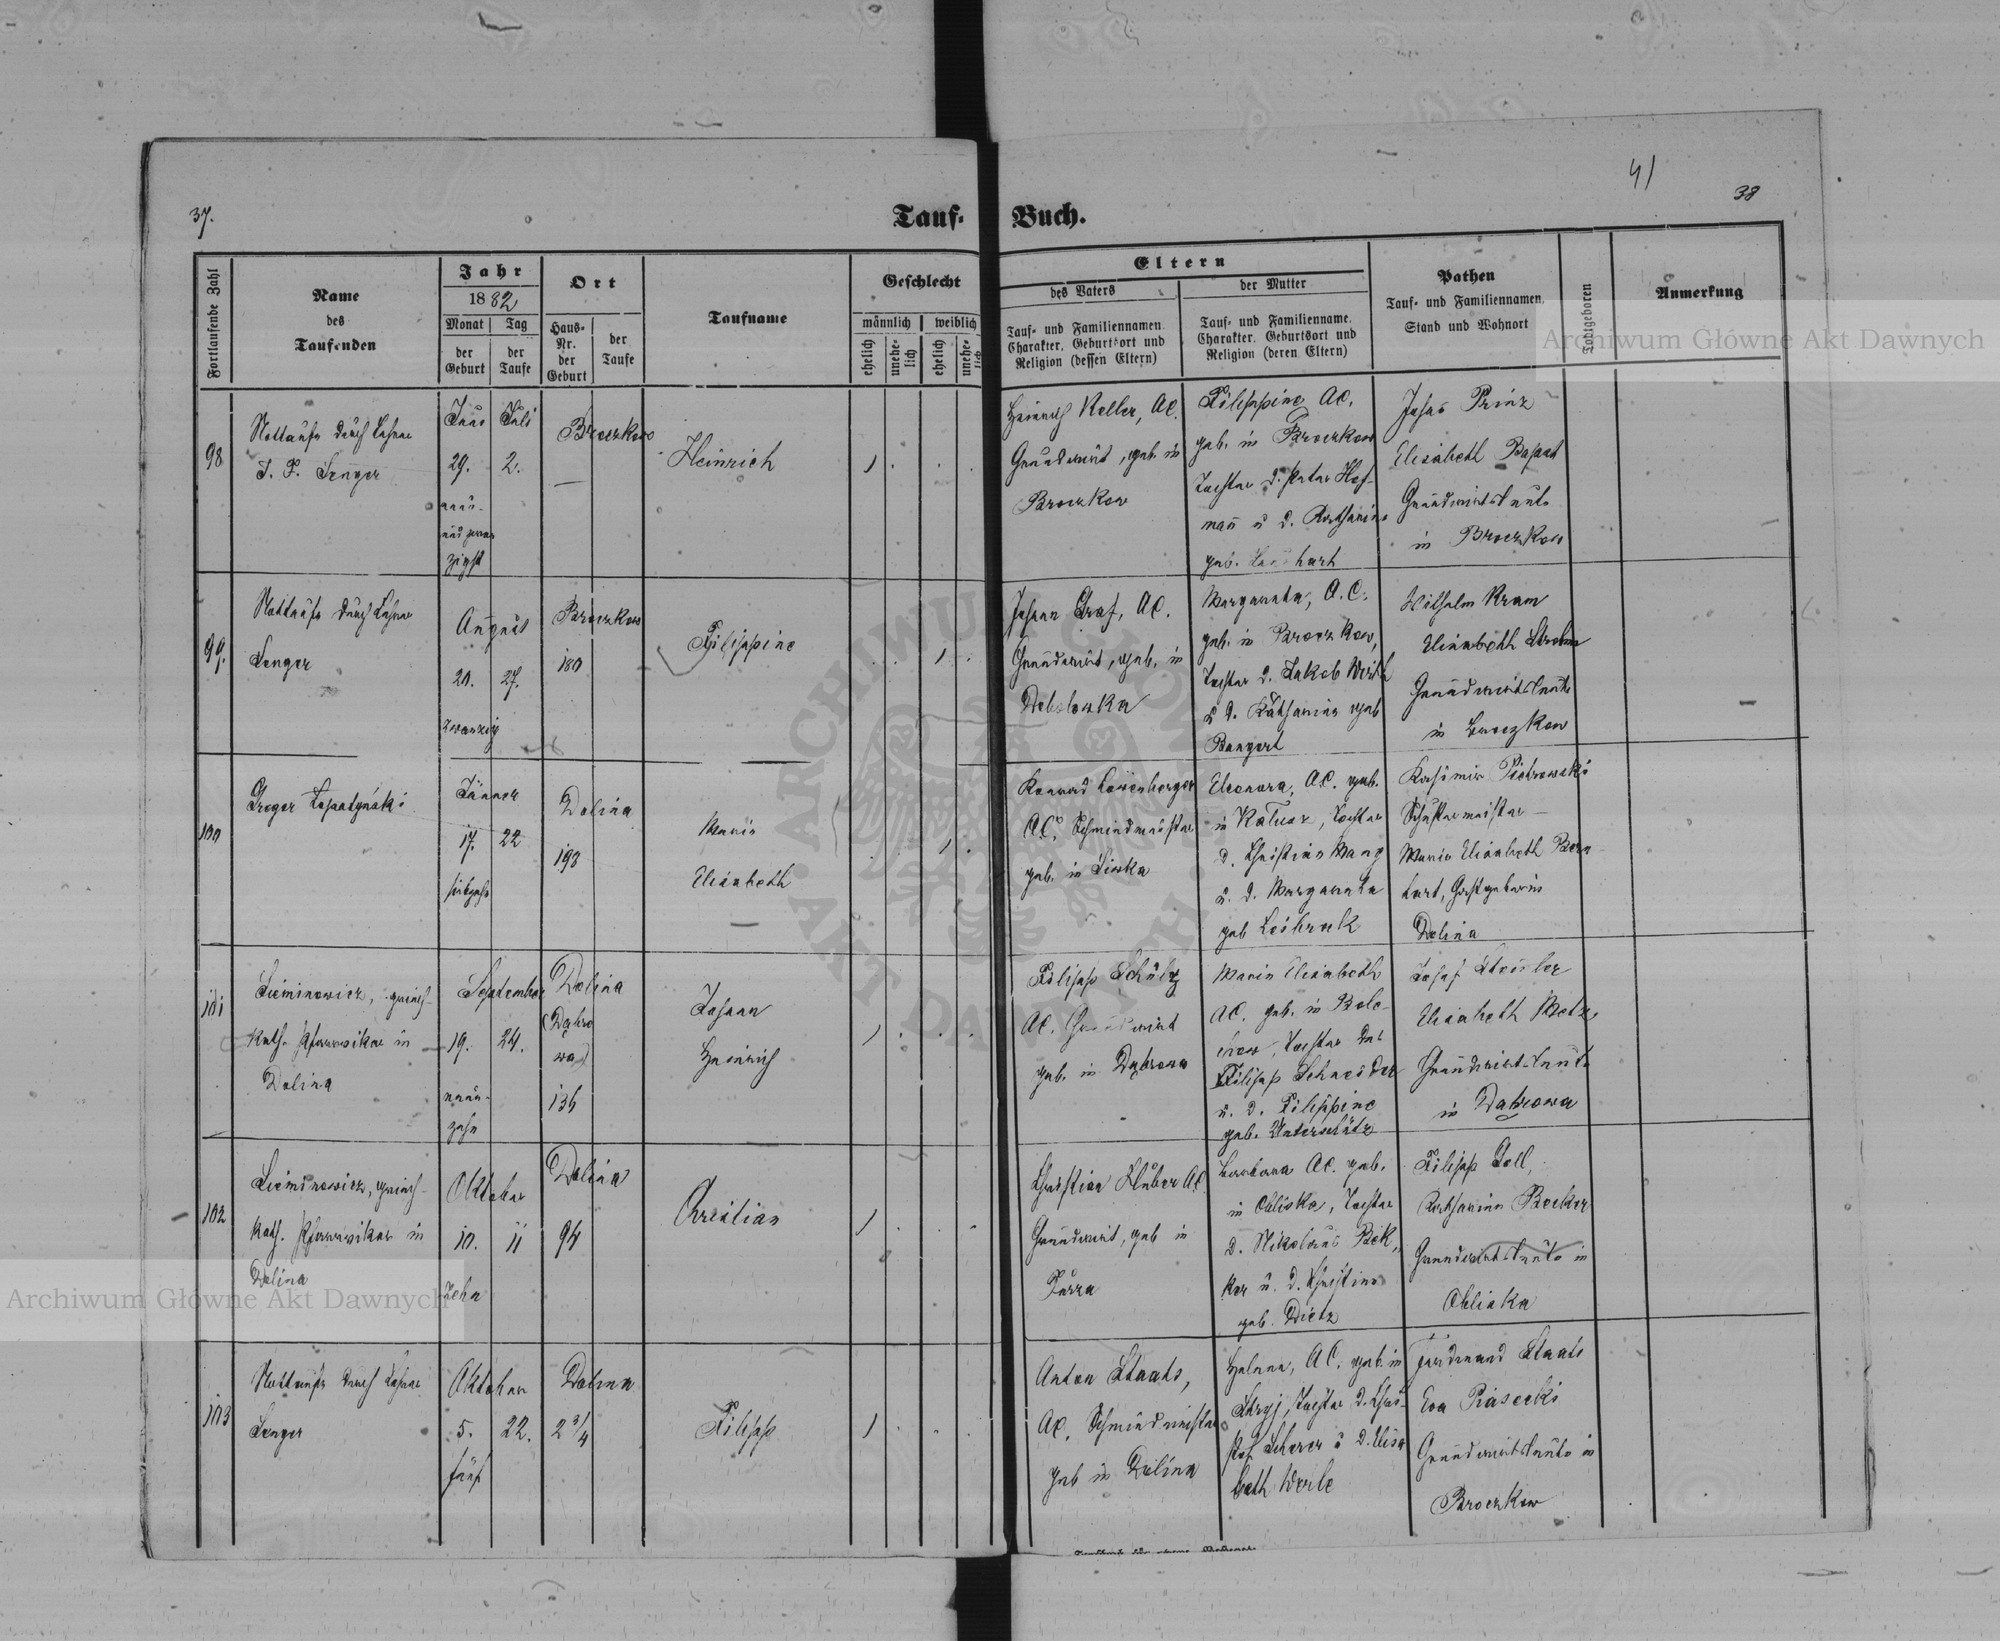 41
37.
38
Tauf-
Buch.
Fortlaufende Zahl
Name
des
Taufenden
Jahr
1882
Monat
Tag
der
Geburt
der
Taufe
Ort
Haus-
Nr.
der
Geburt
der
Taufe
Taufname
Geschlecht
männlich
weiblich
ehelich
unehe-
lich
ehelich
unehe-
lich
Eltern
des Vaters
Tauf- und Familiennamen.
Charakter, Geburtsort und
Religion (dessen Eltern)
der Mutter
Tauf- und Familienname.
Charakter, Geburtsort und
Religion (deren Eltern)
Pathen
Tauf- und Familiennamen,
Stand und Wohnort
Todtgeboren
Anmerkung
98
Nottaufe durch Lehrer
J. P. Senger
Juni
Juli
29.
2.
neun-
und zwan
zigst
Broczkow
Heinrich
Heinrich Keller, AC.
Grundwirt, geb. in
Broczkow
Filippine AC.
geb. in Broczkow
Tochter d. Peter Hof-
mann u d. Katharina
geb.
Johan Prinz
Elisabeth
Grundwirtsleute
in Broczkow
99.
Nottaufe durch Lehrer
Senger
August
20.
27.
zwanzig
Broczkow
180
Filippine
Johann Graf, AC.
Grundwirt, geb. in
Debolowka
Margareta, A.C.
geb. in Broczkow,
Tochter d. Jakob Wirth
u d. Katharina geb
Bangert
Wilhelm Kram
Elisabeth Strohm
Grundwirtsleute
in Broczkow
100
Gregor Lopatynski
Jänner
17.
22
siebzehn
Dolina
193
Maria
Elisabeth
Konrad Löwenberger
AC, Schmiedmeister
geb. in Liska
Eleonora, AC. geb.
in Kalusz, Tochter
d. Christian Mang
u. d. Margareta
geb
Kasimir Pietrowski
Schustermeister
Maria Elisabeth
Dolina
101
Siéminowicz, griech-
kath. Pfarrvikar in
Dolina
September
19.
24.
neun-
zehn
Dolina
(Dąbro
wa)
136
Johann
Heinrich
Filipp Schulz
AC. Grundwirt
geb. in Dąbrowa
Maria Elisabeth
AC. geb. in Bole-
chow, Tochter des
Filipp Schneider
u. d. Filippine
geb. Unterschütz
Josef
Elisabeth Metz,
Grundwirtsleute
in Dąbrowa
102
Siéminowicz, griech-
kath. Pfarrvikar in
Dolina
Oktober
10.
11
zehn
Dolina
94
Christian
Christian Huber AC
Grundwirt, geb in
Barbara AC. geb.
in Obliska, Tochter
d. Nikolaus Bek-
ker u. d. Christina
geb. Dietz
Filipp Doll,
Katharina Becker
Grundwirtsleute in
Obliska
103
Nottaufe durch Lehrer
Senger
Oktober
5.
22.
fünf
Dolina
2 3/4
Filipp
Anton Staats,
AC, Schmiedmeister
geb in Dolina
Helena, AC. geb. in
Stryj, Tochter d. Chri-
stof Scherer u d. Elisa
beth Werle
Ferdinand Staats
Eva Piasecki
Grundwirtsleute in
Broczkow
Archiwum Główne Akt Dawnych
Archiwum Główne Akt Dawnych
ARCHIWUM GŁÓWNE AKT DAWNYCH